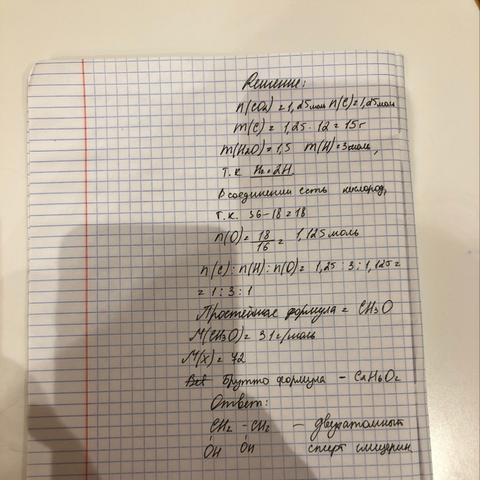 Решение:
n(CO2) = 1,25 моль n(C) = 1,25 моль
m(C) = 1,25 · 12 = 15 г
m(H2O) = 1,5 m(H) = 3 моль,
т.к H2 · 2H
В соединении есть кислород,
т.к. 36 - 18 = 18
n(O) = 18/16 = 1,125 моль
n(C) : n(H) : n(O) = 1,25 : 3 : 1,125 =
= 1 : 3 : 1
Простейшая формула = CH3O
M(CH3O) = 31 г/моль
M(x) = 72
Брутто формула - C2H6O2
Ответ:
CH2 - CH2 - двухатомный
OH OH спирт глицерин